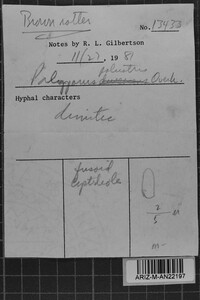 Brown rotter
No. 13433
Notes by R. L. Gilbertson
11/27, 1981
palustris
Polyporus Overh.
Hyphal characters
dimitic
fusoid
cystidiole
ARIZ-M-AN22197